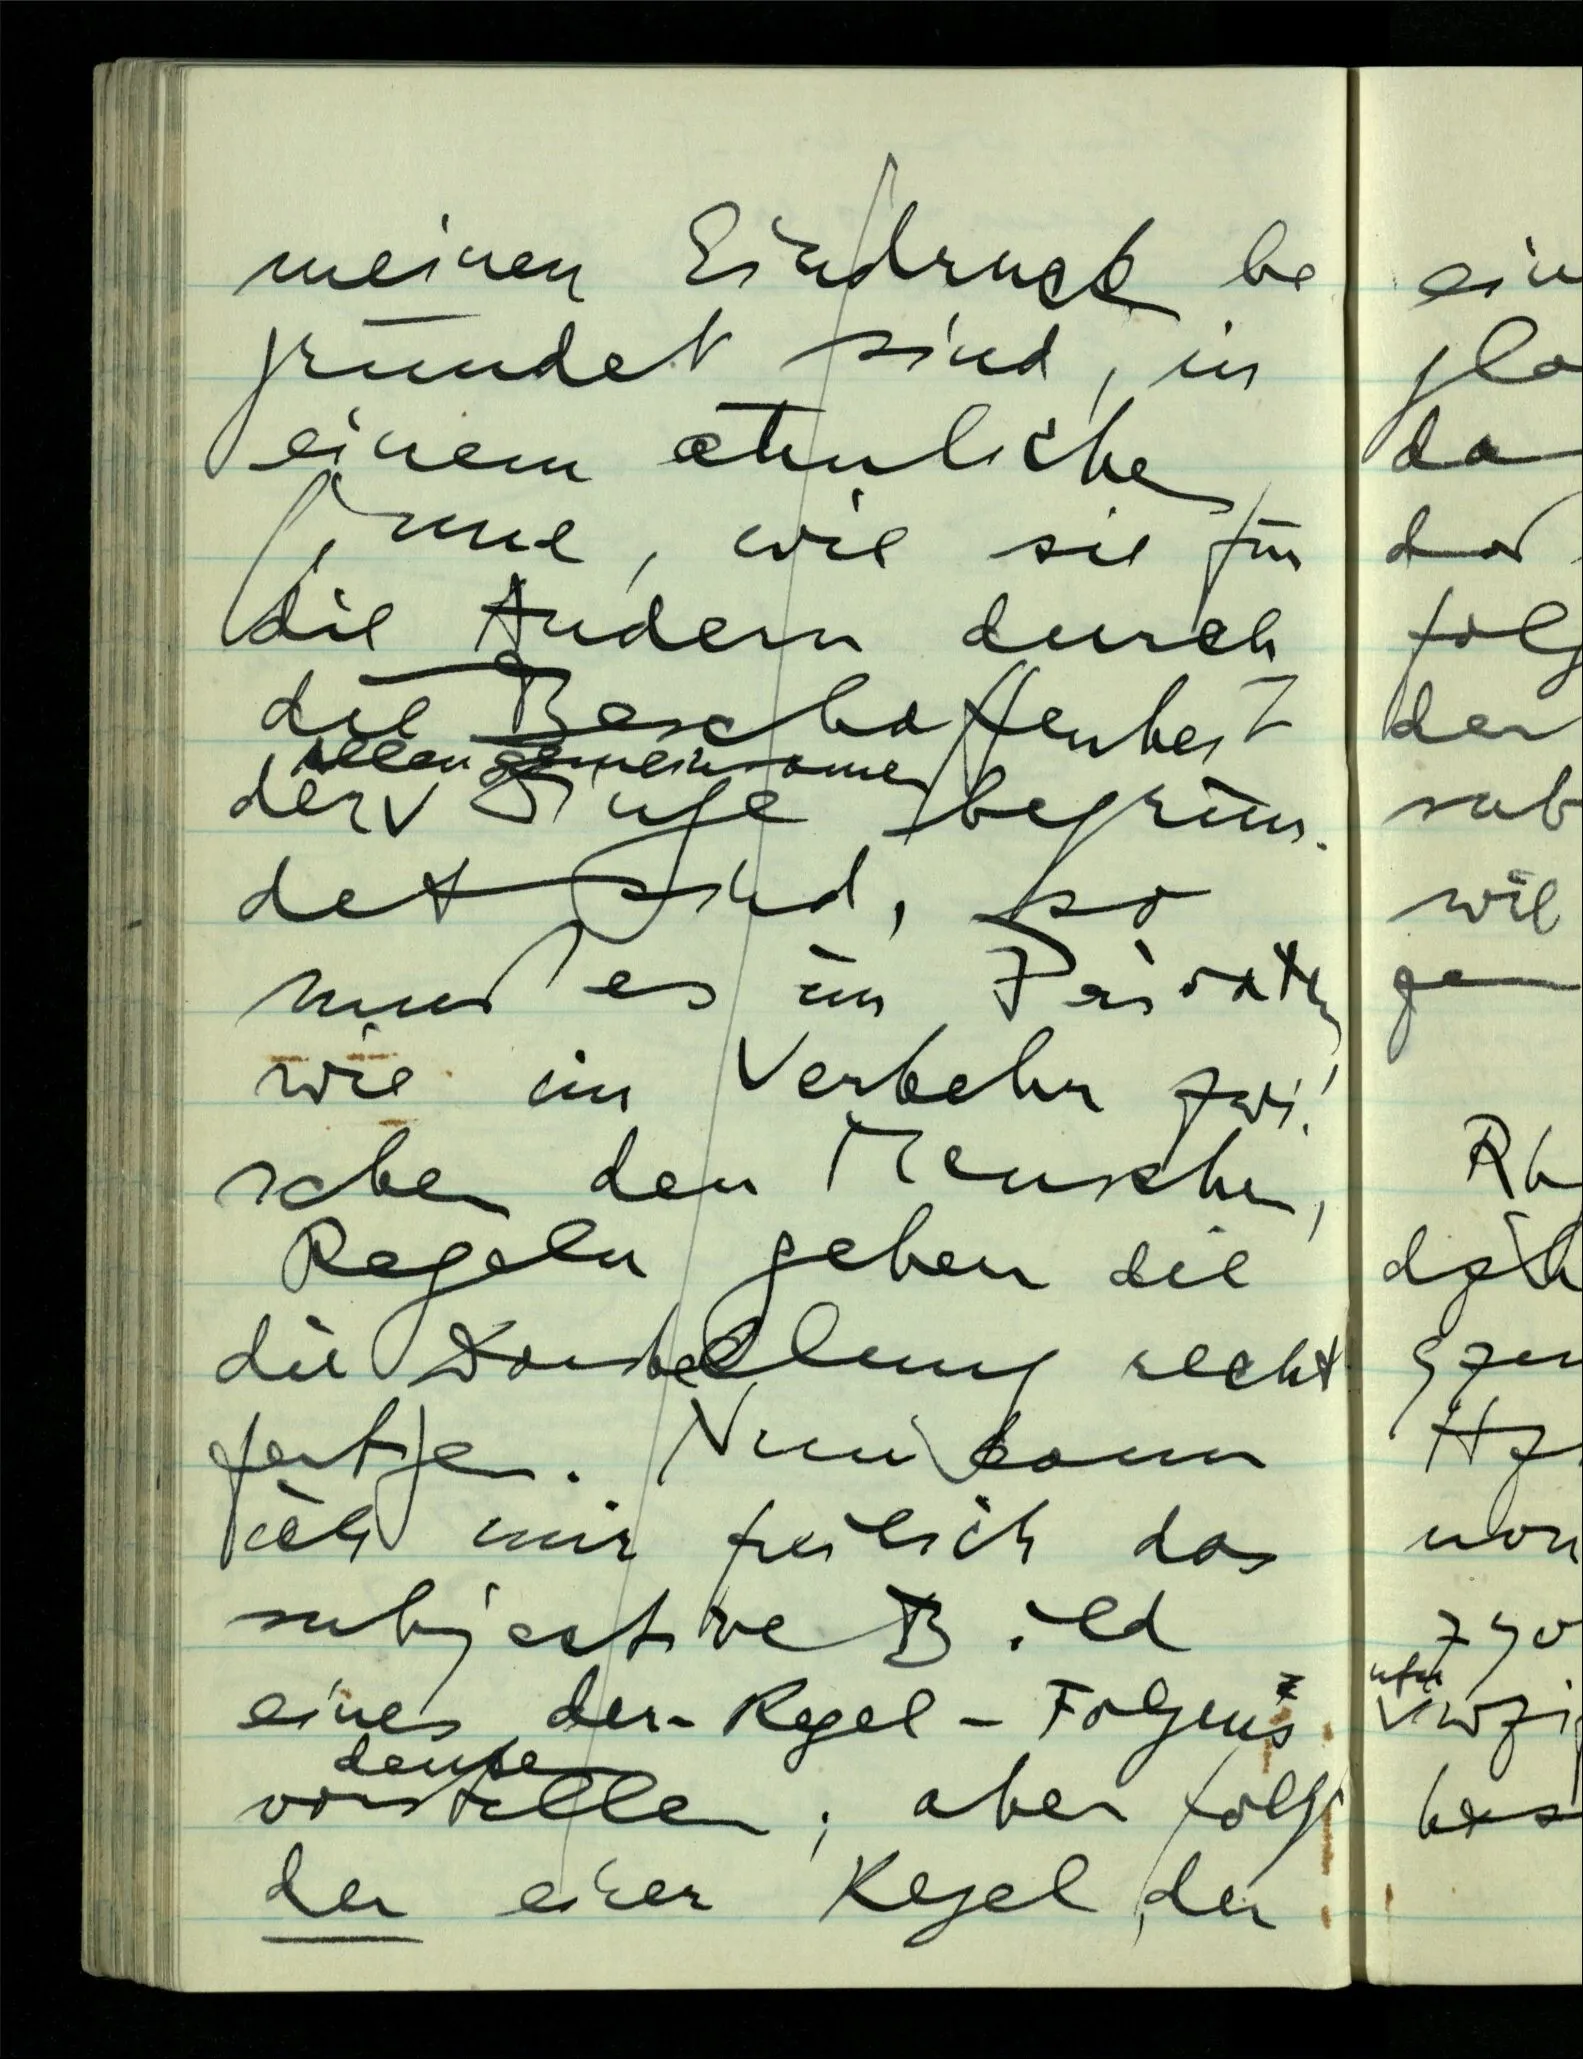 meinen Eindruck be
gründet sind, in
einem ähnlichen
Sinne, wie sie für
die Andern durch
die Beschaffenheit
allen gemeinsamen
der Dinge begrün-
det sind, so
muß es im Privaten
wie im Verkehr zwi-
schen den Menschen,
Regeln geben die
die Darstellung recht
fertigen. Nun kann
ich mir freilich das
subjective Bild
eines der-Regel-Folgens
denke
vorstellen; aber folgt
der einer Regel, der
ein
gla
da
daß
folg
der
sub
wie
ge